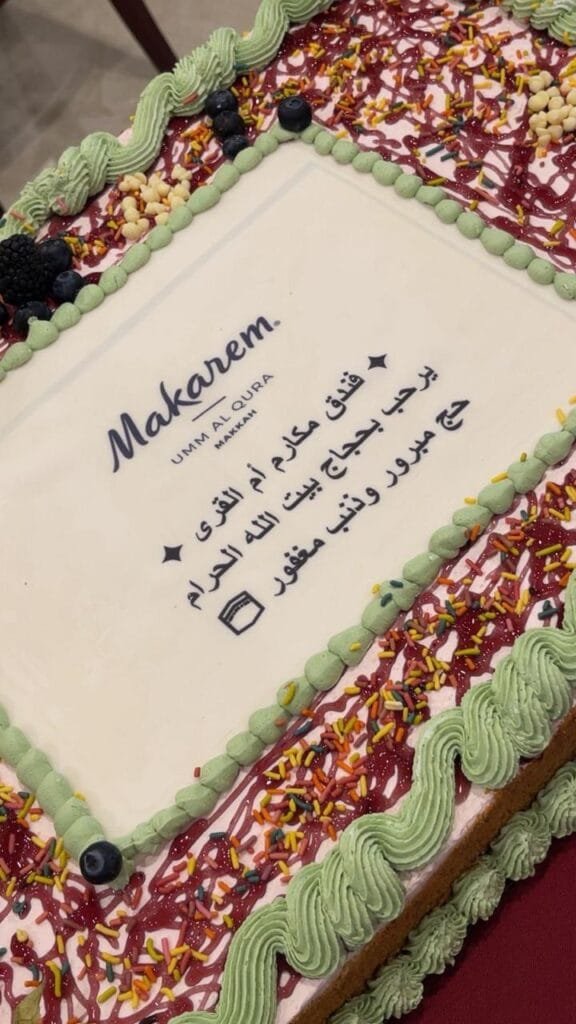 Makarem
UMM AL QURA
MAKKAH
فندق مكارم أم القرى
يرحب بحجاج بيت الله الحرام
حج مبرور وذنب مغفور